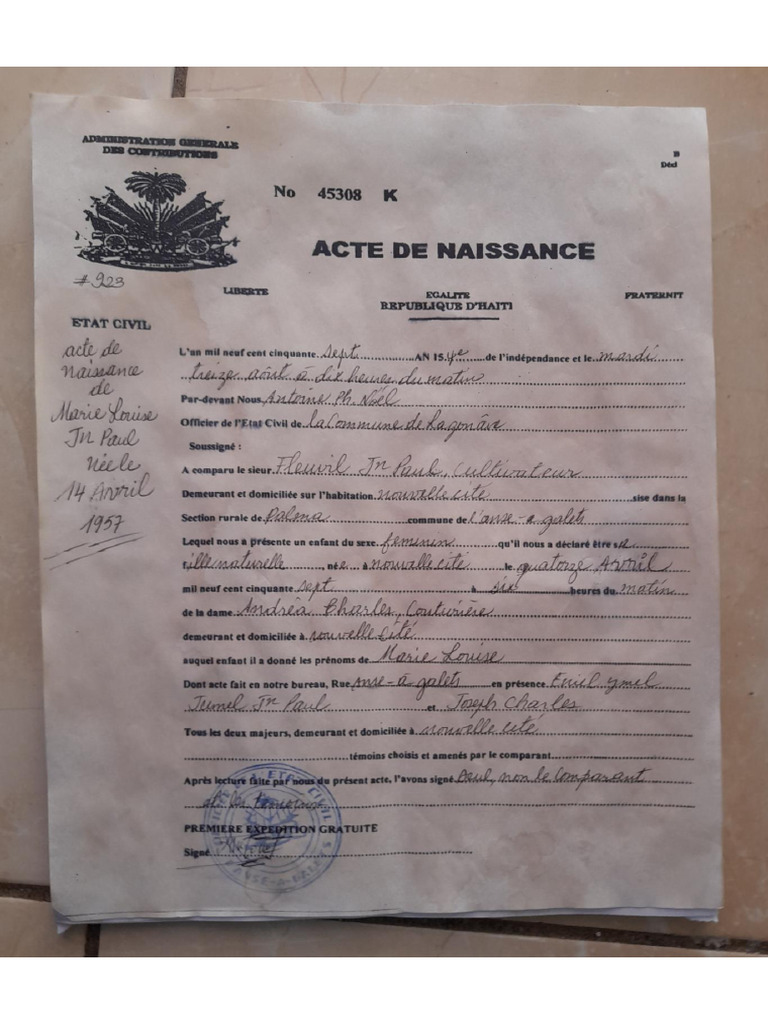 ADMINISTRATION GENERALE
DES CONTRIBUTIONS
D
Décl
No 45308 K
ACTE DE NAISSANCE
#923
LIBERTE EGALITE FRATERNIT
REPUBLIQUE D'HAITI
ETAT CIVIL
acte de
Naissance
de
Marie Louise
Jn Paul
Née le
14 Avril
1957
L'an mil neuf cent cinquante sept AN 154e de l'indépendance et le mardi
treize août à dix heures du matin
Par-devant Nous Antoine Ph. Noël
Officier de l'Etat Civil de la Commune de Lagonâve
Soussigné :
A comparu le sieur Fleuvil Jn Paul, Cultivateur
Demeurant et domiciliée sur l'habitation nouvelle cité sise dans la
Section rurale de Palma commune de l'anse-a-galets
Lequel nous a présente un enfant du sexe feminin qu'il nous a déclaré être sa
fille naturelle, née à nouvelle cité le quatorze Avril
mil neuf cent cinquante sept à six heures du matin
de la dame Andréa Charles, Couturière
demeurant et domiciliée à nouvelle cité
auquel enfant il a donné les prénoms de Marie Louise
Dont acte fait en notre bureau, Rue Anse-à galets en présence
Jn Paul et Joseph Charles
Tous les deux majeurs, demeurant et domiciliée à nouvelle cité
témoins choisis et amenés par le comparant
Après lecture faite par nous du présent acte, l'avons signé seul, non le Comparant
PREMIERE EXPEDITION GRATUITE
Signé
ETAT CIVIL